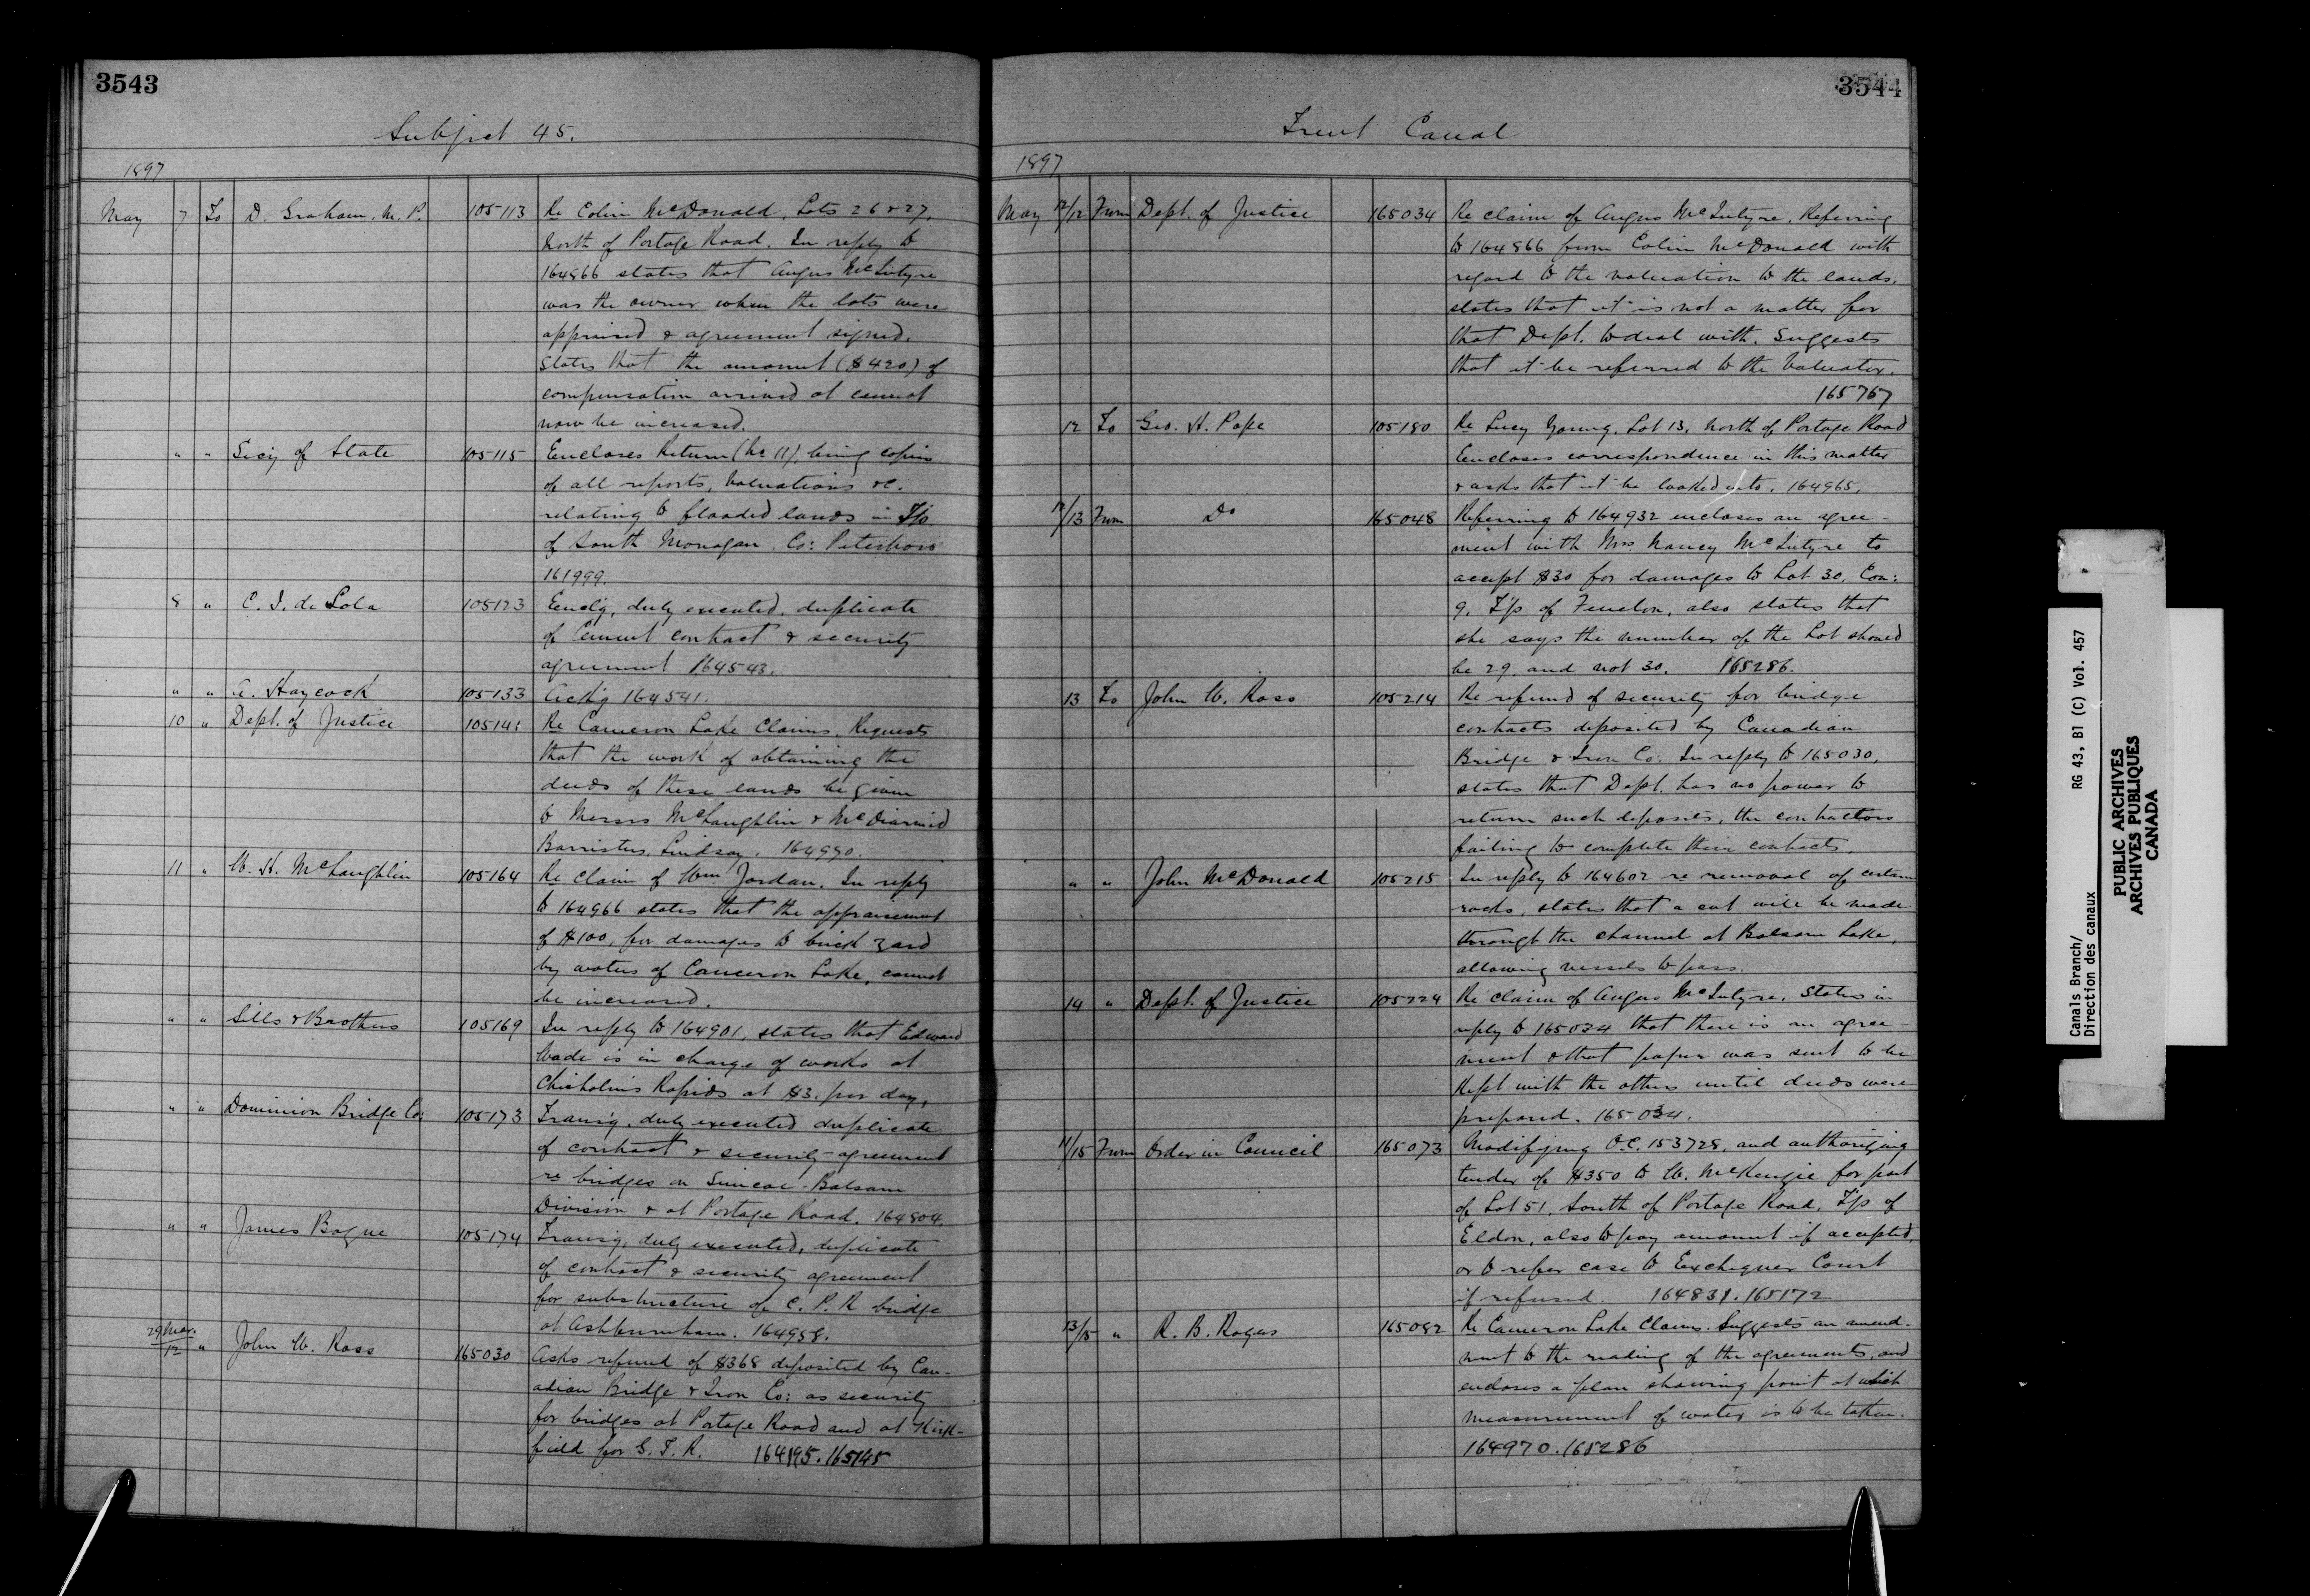 3543
Subject 45.
1897
May 7 To D. Graham, M. P. 105113 Re Colin McDonald, Lots 26 & 27,
North of Portage Road. In reply to
164866 states that Angus McIntyre
was the owner when the lots were
appraised & agreement signed.
States that the amount ($420) of
compensation arrived at cannot
now be increased.
" " Secy of State 105115 Encloses Return (No 11), being copies
of all reports, valuations &c.
relating to flooded lands in T/p
of South Monaghan, Co: Peterboro
161999.
8 " C. I. de Sola 105123 Enclg, duly executed, duplicate
of Cement contract & security
agreement 164543.
" " A. Haycock 105133 Ackg 164541.
10 " Dept. of Justice 105141 Re Cameron Lake Claims, Requests
that the work of obtaining the
deeds of these lands be given
to Messrs McLaughlin & McDiarmid
Barristers, Lindsay. 164970.
11 " W. H. McLaughlin 105164 Re claim of Wm Jordan. In reply
to 164966 states that the appraisement
of $100, for damages to brick yard
by waters of Cameron Lake, cannot
be increased.
" " Sills & Brothers 105169 In reply to 164901, states that Edward
Wade is in charge of works at
Chisholm's Rapids at $3. per day,
" " Dominion Bridge Co: 105173 Transg, duly executed duplicate
of contract & security agreement
re bridges on Simcoe-Balsam
Division & at Portage Road. 164804.
" " James Bogue 105174 Transg, duly executed, duplicate
of contract & security agreement
for substructure of C. P. R bridge
at Ashburnham. 164958.
29 Mar./12 " John W. Ross 165030 Asks refund of $368 deposited by Can-
adian Bridge & Iron Co: as security
for bridges at Portage Road and at Kirk-
field for G. T. R. 164195. 165145
3544
Trent Canal
1897
May 12/12 From Dept. of Justice 165034 Re claim of Angus McIntyre, Referring
to 164866 from Colin McDonald with
regard to the valuation to the lands,
states that it is not a matter for
that Dept. to deal with. Suggests
that it be referred to the Valuator.
165767
12 To Geo. H. Pope 105180 Re Lucy Young, Lot 13, North of Portage Road
Encloses correspondence in this matter
& asks that it be looked into. 164965.
12/13 From Do 165048 Referring to 164932 encloses an agree-
ment with Mrs. Nancy McIntyre to
accept $30 for damages to Lot 30, Con:
9, T/p of Fenelon, also states that
she says the number of the Lot should
be 29 and not 30. 165286.
13 To John W. Ross 105214 Re refund of security for bridge
contracts deposited by Canadian
Bridge & Iron Co: In reply to 165030,
states that Dept. has no power to
return such deposits, the contractors
failing to complete their contracts.
" " John McDonald 105215 In reply to 164602 re removal of certain
rocks, states that a cut will be made
through the channel at Balsam Lake,
allowing vessels to pass.
14 " Dept. of Justice 105224 Re claim of Angus McIntyre, States in
reply to 165034 that there is an agree-
ment & that paper was sent to be
Kept with the others until deeds were
prepared. 165034.
11/15 From Order in Council 165073 Modifying O.C. 153728, and authorizing
tender of $350 to W. McKenzie for part
of Lot 51, South of Portage Road, T/p of
Eldon, also to pay amount if accepted,
or to refer case to Exchequer Court
if refused. 164831. 165172
13/15 " R. B. Rogers 165082 Re Cameron Lake Claims. Suggests an amend-
ment to the reading of the agreements, and
encloses a plan showing point at which
measurement of water is to be taken.
164970. 165286
Canals Branch/ RG 43, B1 (C) Vol. 457
Direction des canaux
PUBLIC ARCHIVES
ARCHIVES PUBLIQUES
CANADA